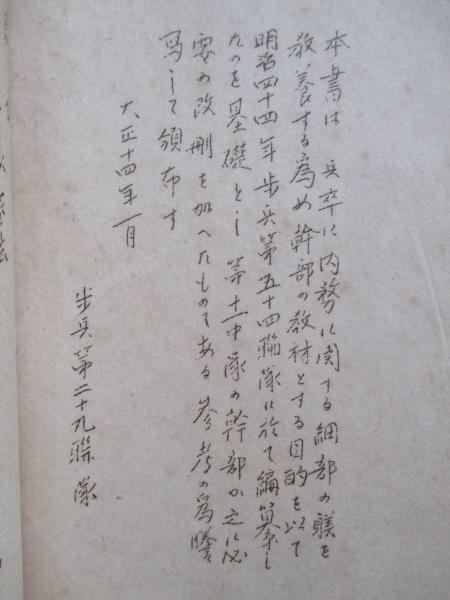 本書は兵卒に内務に関する細部の躾を
教養する為め幹部の教材とする目的を以て
明治四十四年歩兵第五十四聯隊に於て編纂し
たのを基礎とし第十一中隊の幹部か之に必
要の改刪を加へたものてある参考の為謄
写して頒布す
大正十四年一月
歩兵第二十九聯隊